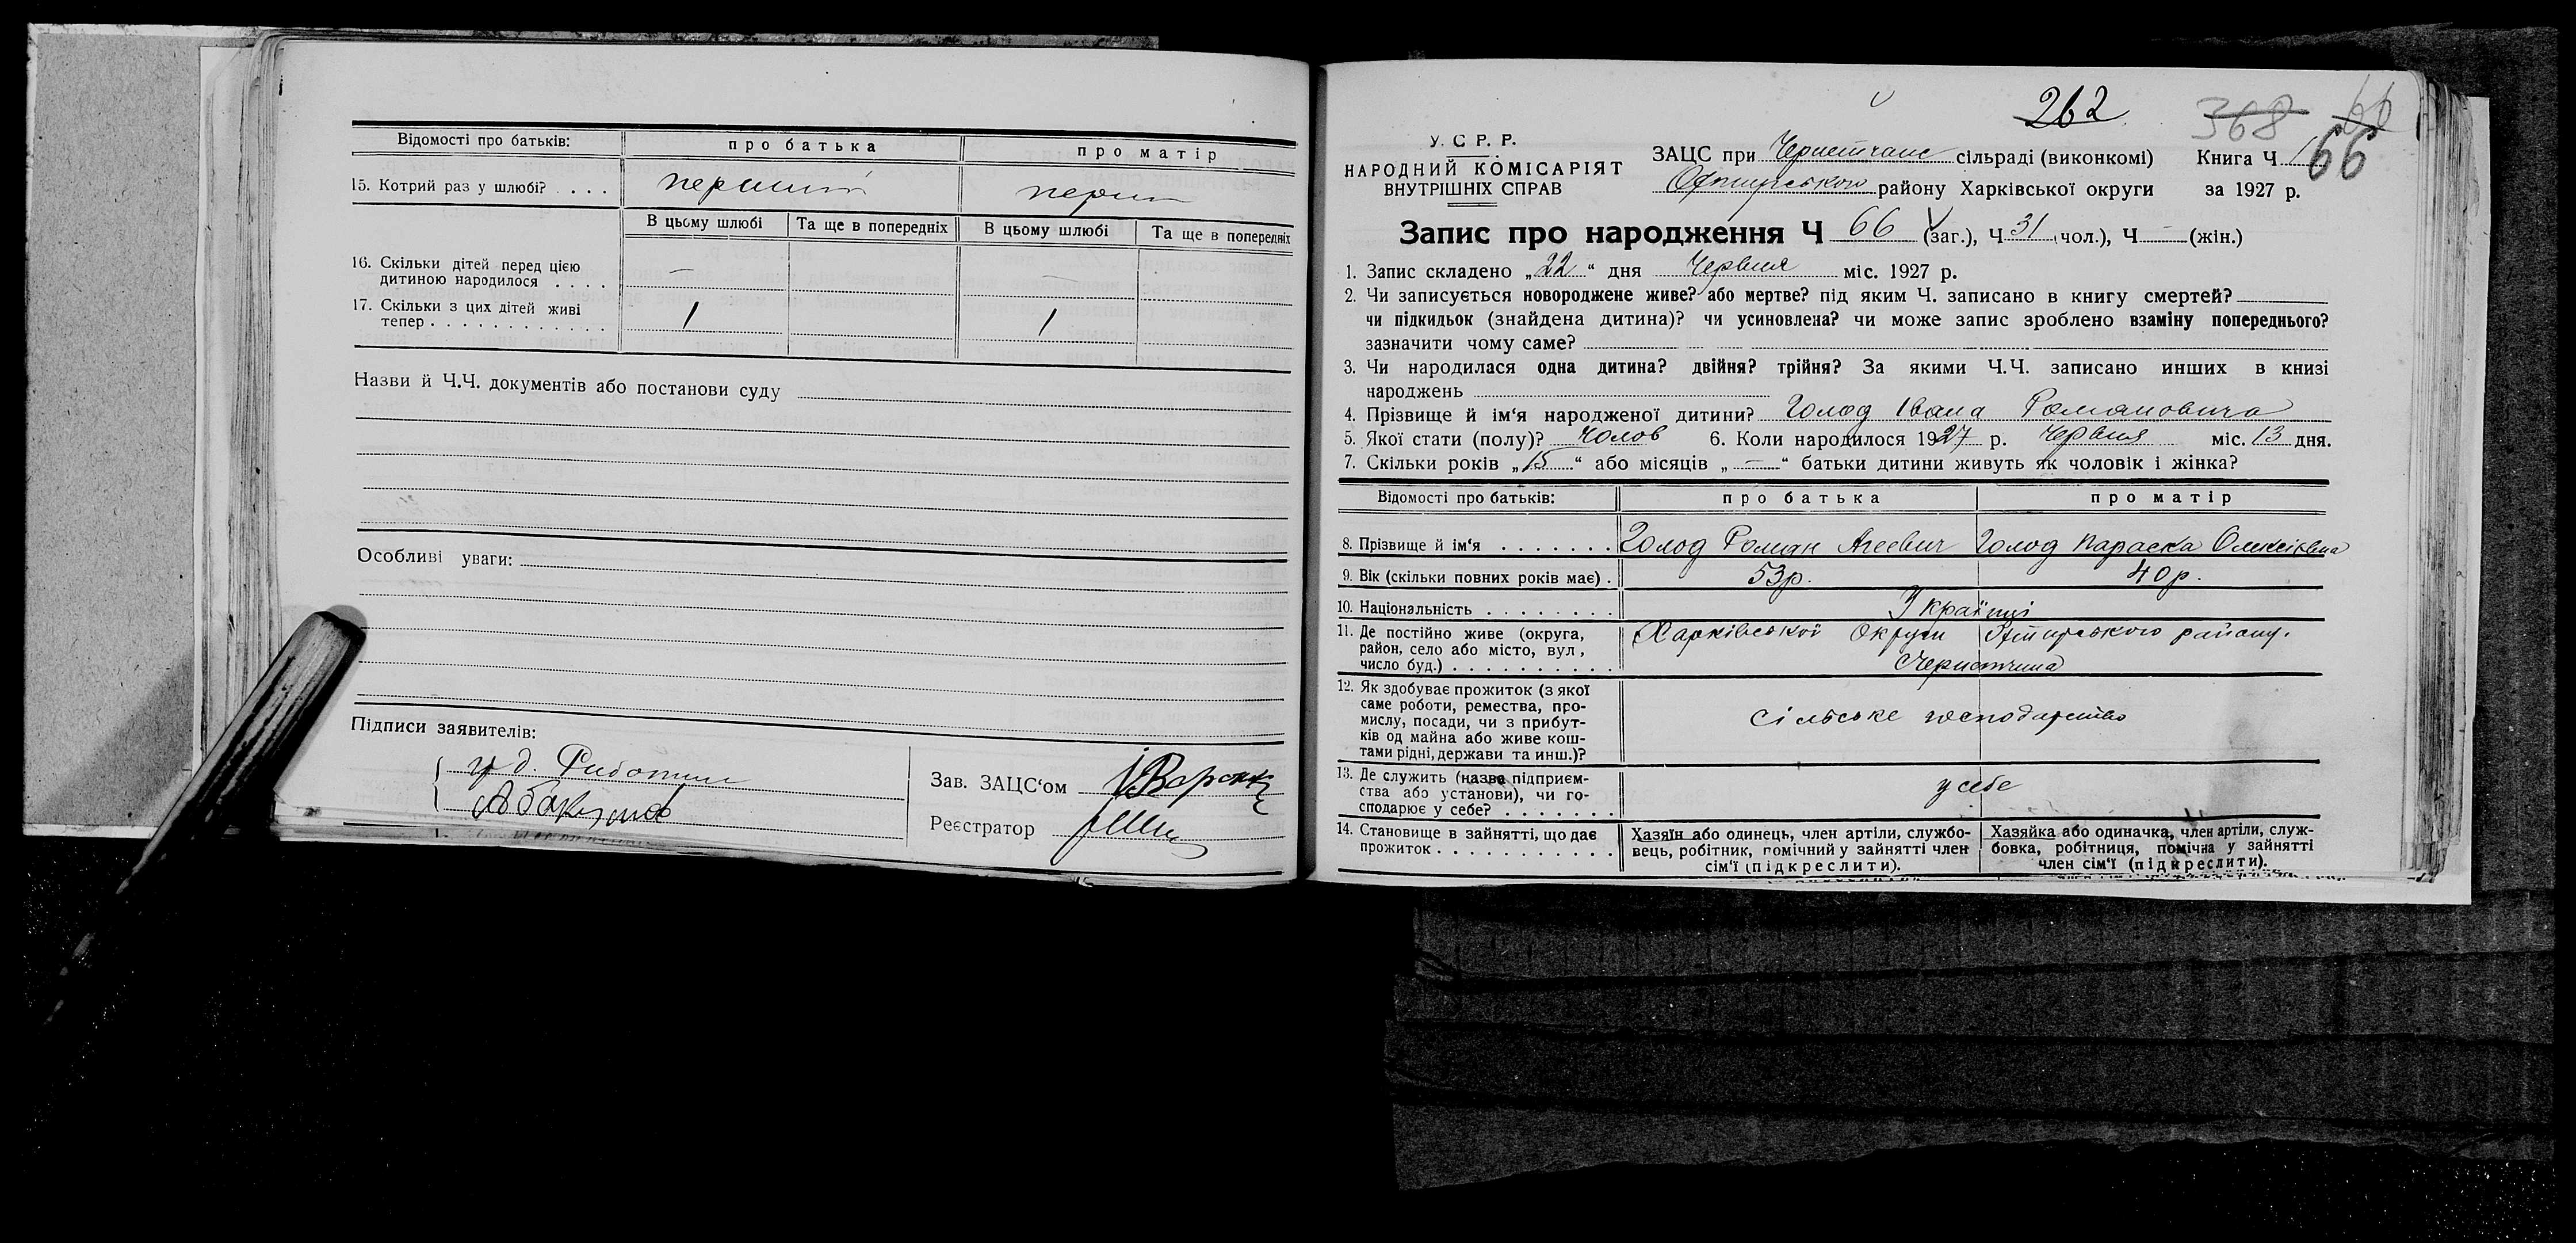 Відомості про батьків: про батька про матір
15. Котрий раз у шлюбі? . . . . перший
В цьому шлюбі Та ще в попередніх В цьому шлюбі Та ще в попередніх
16. Скільки дітей перед цією
дитиною народилося . . . . — —
17. Скільки з цих дітей живі
тепер . . . . . . . . . . . . 1 1
Назви й Ч.Ч. документів або постанови суду
Особливі уваги:
Підписи заявителів:
Зав. ЗАЦС‘ом
Реєстратор
262 368 66
У. С. Р. Р.
НАРОДНИЙ КОМІСАРІЯТ
ВНУТРІШНІХ СПРАВ
ЗАЦС при сільраді (виконкомі) Книга Ч 66
району Харківської округи за 1927 р.
Запис про народження Ч 66 (заг.), Ч 31 (чол.), Ч — (жін.)
1. Запис складено „22“ дня Червня міс. 1927 р.
2. Чи записується новороджене живе? або мертве? під яким Ч. записано в книгу смертей?
чи підкидьок (знайдена дитина)? чи усиновлена? чи може запис зроблено взаміну попереднього?
зазначити чому саме?
3. Чи народилася одна дитина? двійня? трійня? За якими Ч.Ч. записано инших в книзі
народжень
4. Прізвище й ім‘я народженої дитини? Голод Івана Романовича
5. Якої стати (полу)? Чолов 6. Коли народилося 1927 р. Червня міс. 13 дня.
7. Скільки років „15“ або місяців „—“ батьки дитини живуть як чоловік і жінка?
Відомості про батьків: про батька про матір
8. Прізвище й ім‘я . . . . . . . Голод Роман Агеевич Голод Параска Олексіївна
9. Вік (скільки повних років має) . 53р. 40р.
10. Національність . . . . . . . . Українці
11. Де постійно живе (округа, Харківської Округи району.
район, село або місто, вул,
число буд.) . . . . . . . . . .
12. Як здобуває прожиток (з якої
саме роботи, ремества, про-
мислу, посади, чи з прибут- сільське господарство
ків од майна або живе кош-
тами рідні, держави та инш.)?
13. Де служить (назва підприєм-
ства або установи), чи го- у себе
сподарює у себе? . . . . . . .
14. Становище в зайнятті, що дає Хазяїн або одинець, член артіли, службо- Хазяйка або одиначка, член артіли, служ-
прожиток . . . . . . . . . . . вець, робітник, помічний у зайнятті член бовка, робітниця, помічна у зайнятті
сім‘ї (підкреслити). член сім‘ї (підкреслити).